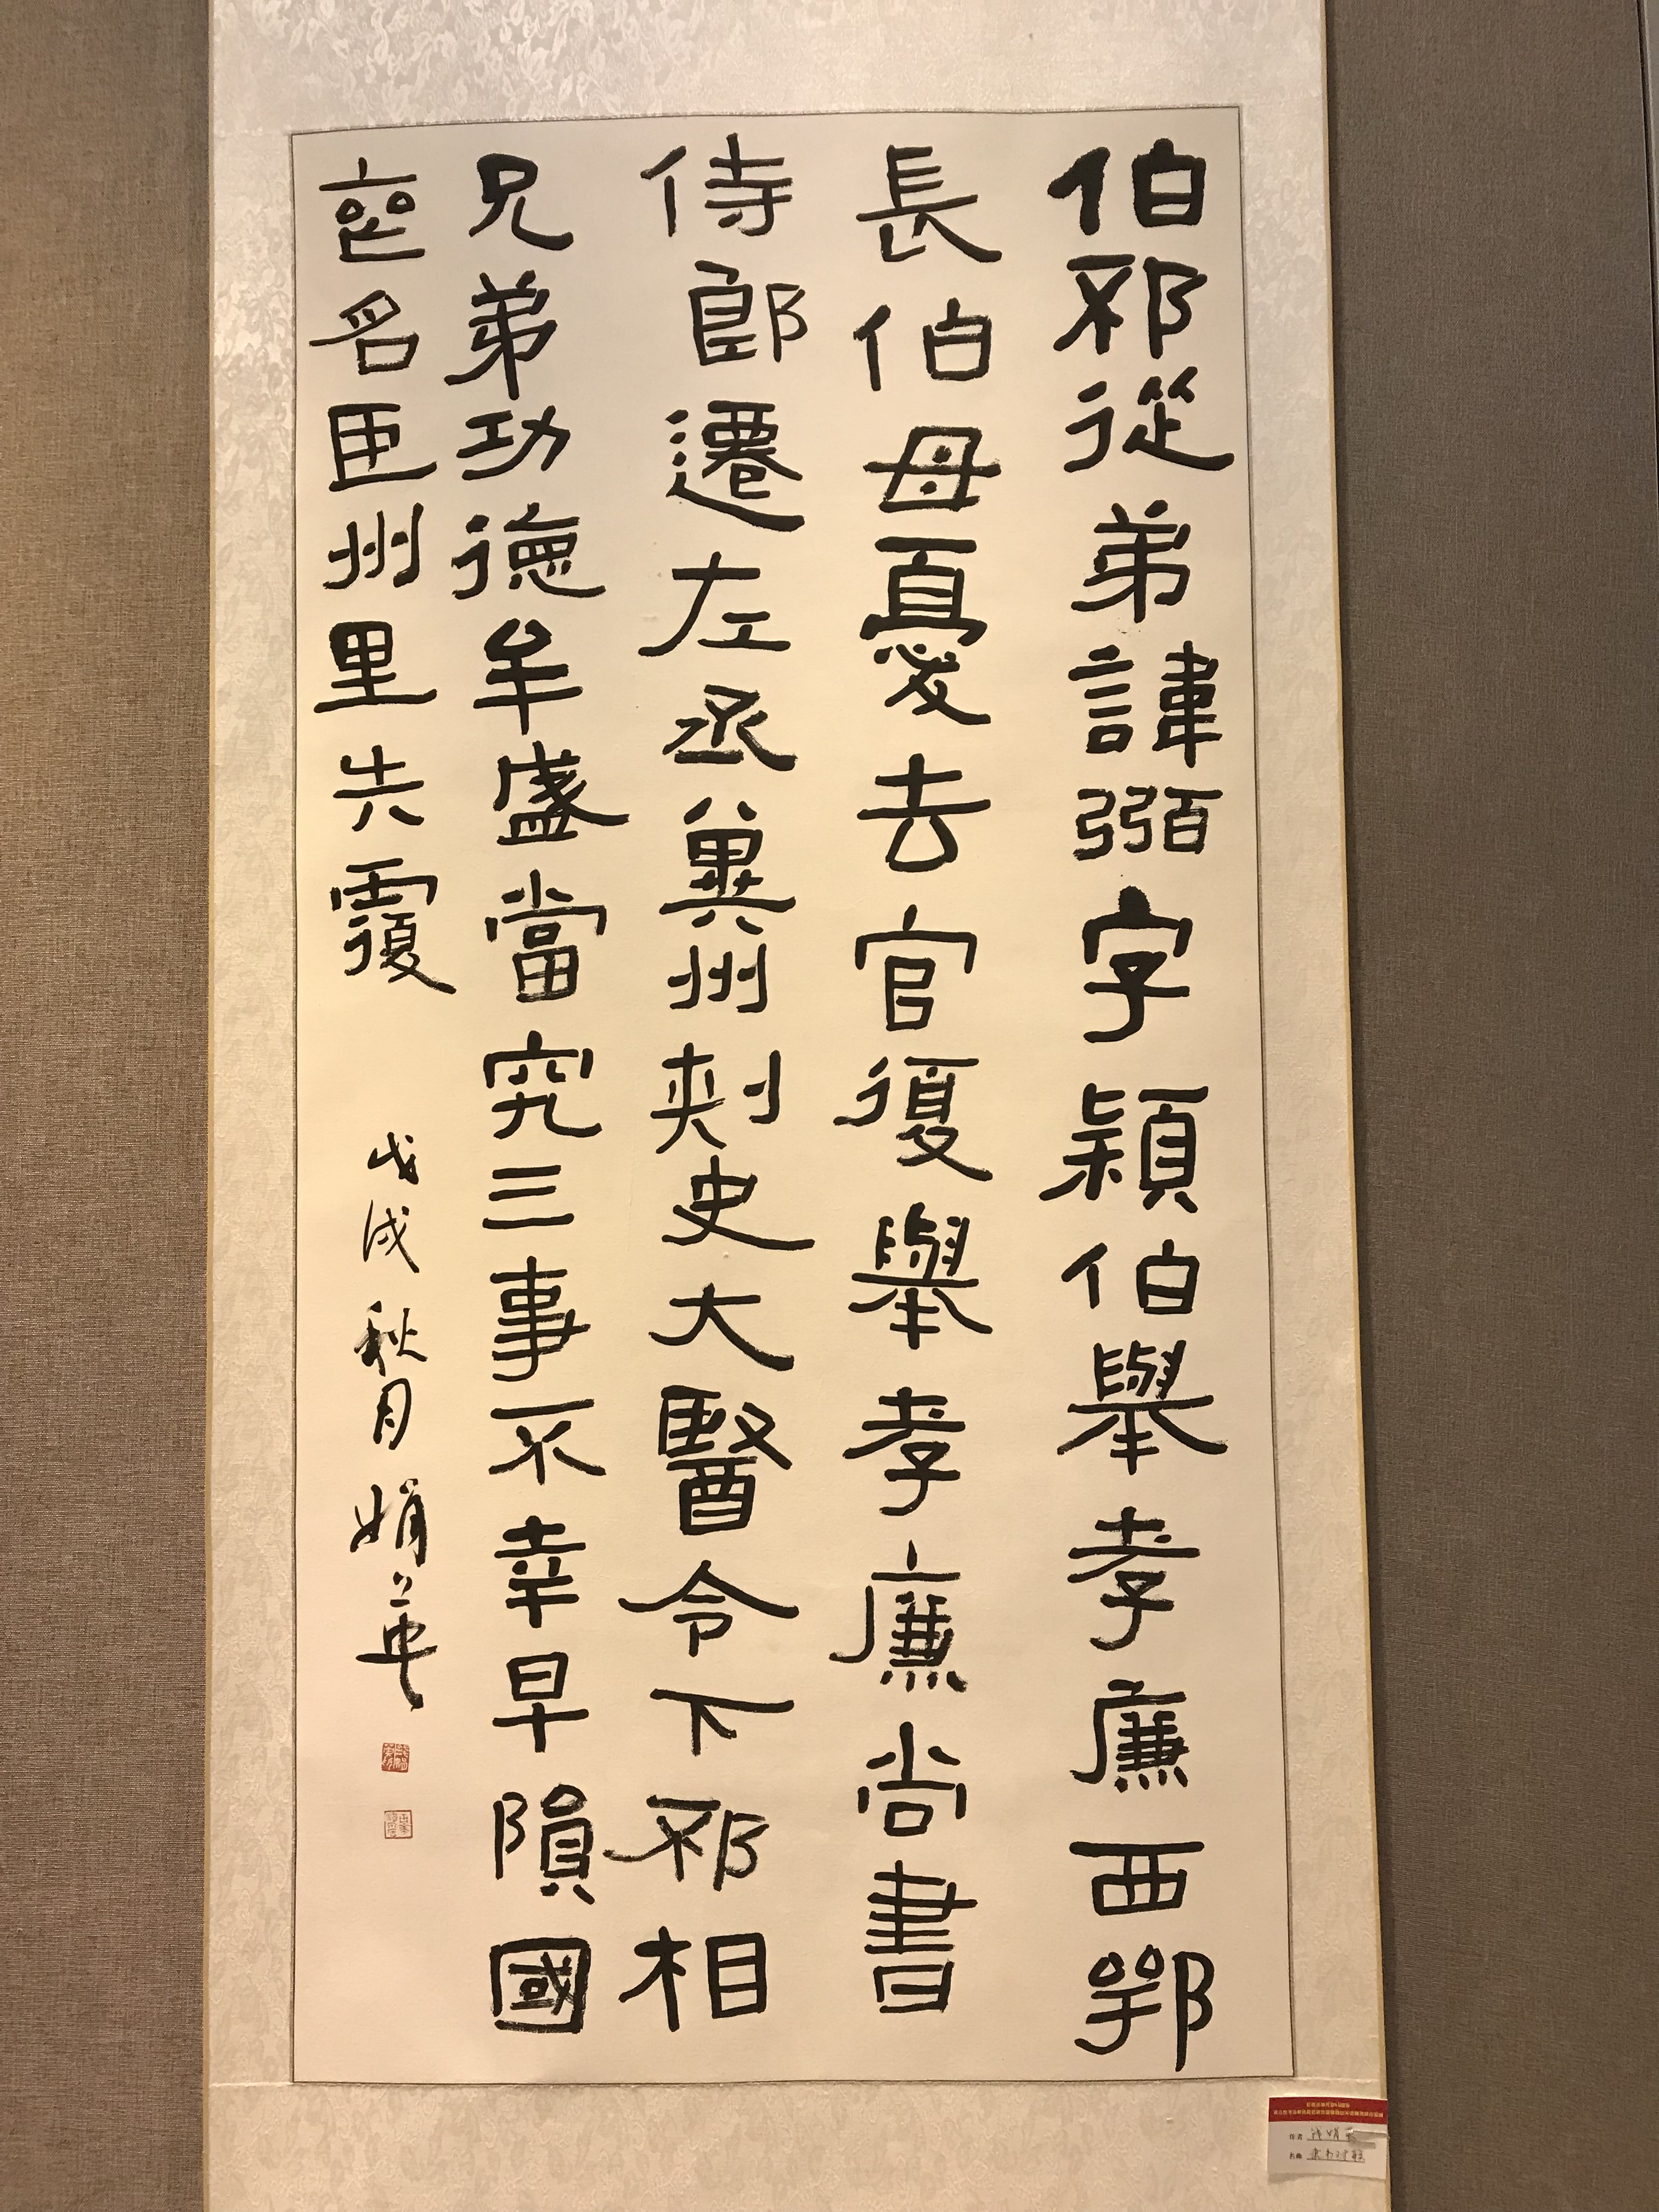 伯邳從弟諱弼字穎伯舉孝廉西鄂
長伯母憂去官復舉孝廉尚書
侍郎遷左丞冀州刾史大醫令下邳相
兄弟功德牟盛當究三事不幸早隕國
喪名臣州里失覆
戊戌秋月娟英
作者
名称